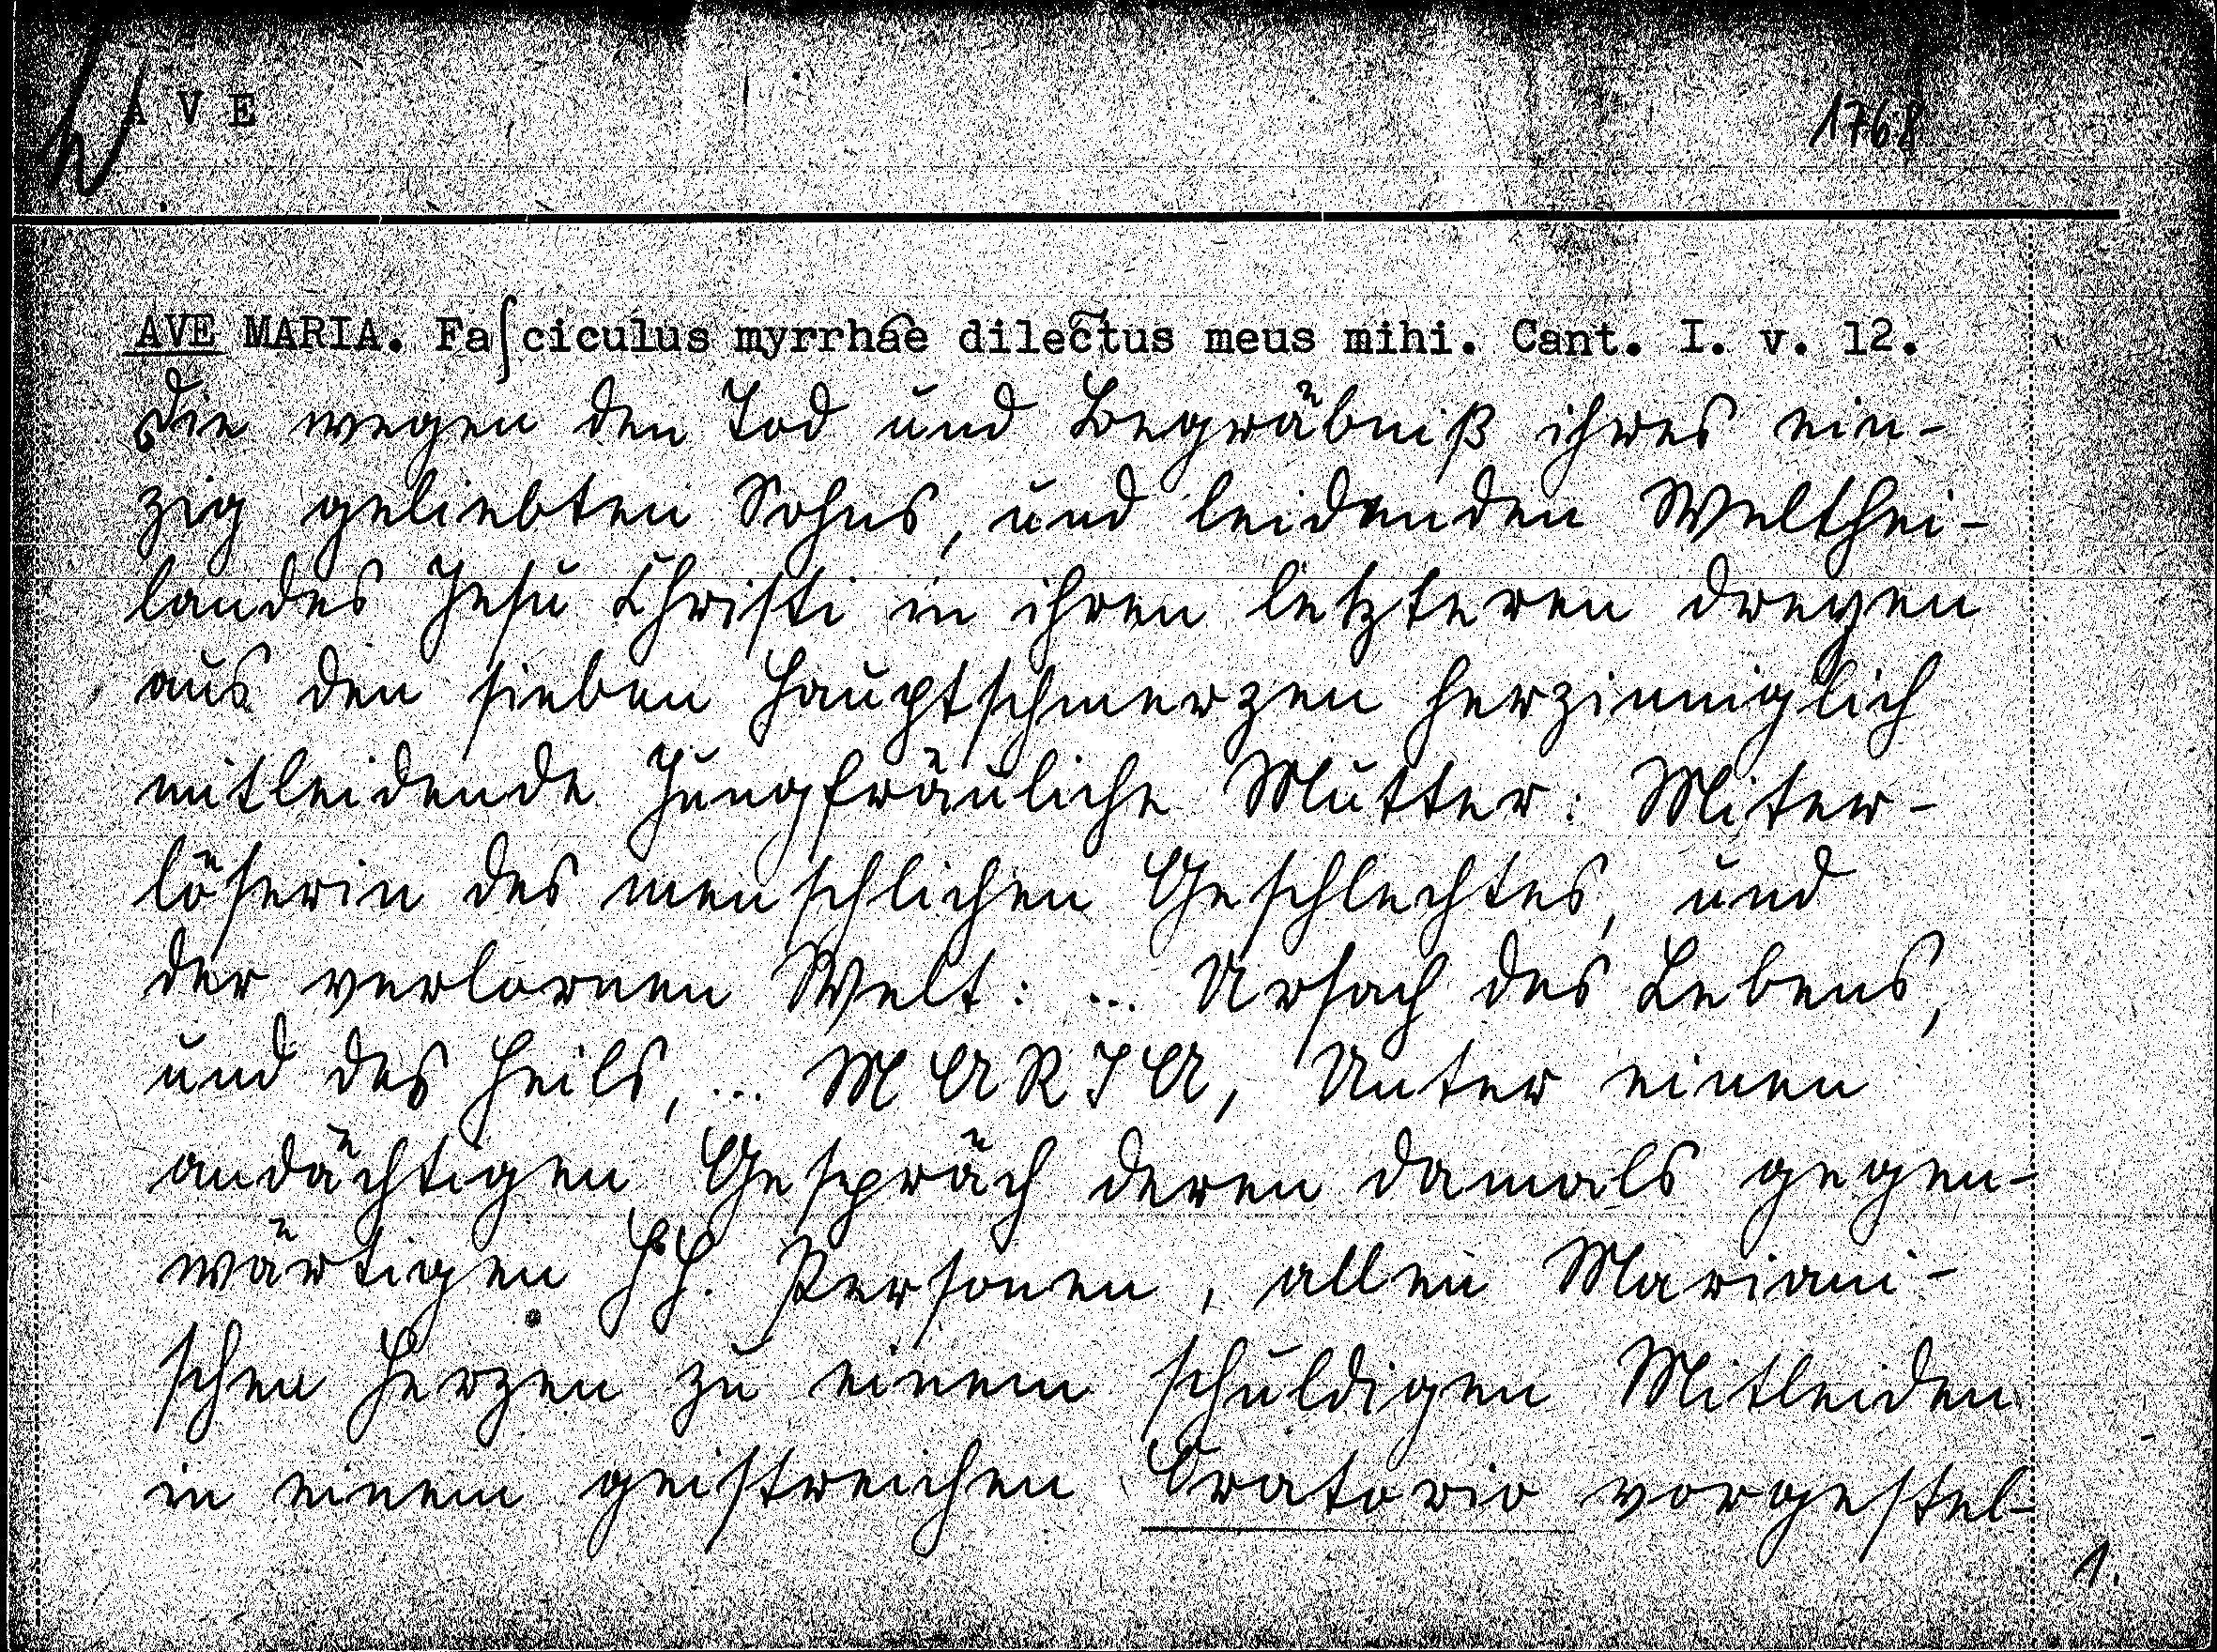 W AVE 1768
AVE MARIA. Faſciculus myrrhae dilectus meus mihi. Cant. I. v. 12.
Die wegen den Tod und Begräbniß ihres ein-
zig geliebten Sohns, und leidenden Welthei-
landes Jesu Christi in ihren letzteren dreyen
aus den sieben Hauptschmerzen herzinniglich
mitleidende Jungfräuliche Mutter: Miter-
löserin des menschlichen Geschlechtes, und
der verlornen Welt: ... Ursach des Lebens,
und des Heils, ... MARIA, Unter einen
andächtigen Gespräch deren damals gegen-
wärtigen HH. Personen, allen Mariani-
schen Herzen zu einem schuldigen Mitleiden
in einem geistreichen Oratorio vorgestel-
1.